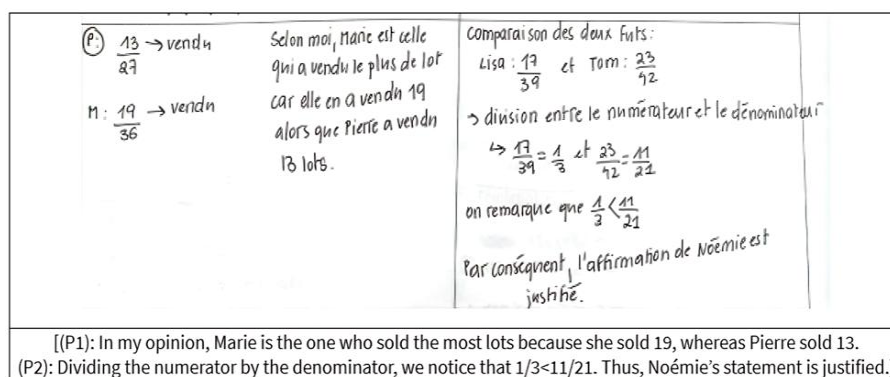 P: 13/27 → vendu
M: 19/36 → vendu
Selon moi, Marie est celle
qui a vendu le plus de lot
car elle en a vendu 19
alors que Pierre a vendu
13 lots.
Comparaison des deux futs:
Lisa: 17/39 et Tom: 23/42
→ division entre le numérateur et le dénominateur
↳ 17/39 = 1/3 et 23/42 = 11/21
on remarque que 1/3 < 11/21
Par conséquent, l'affirmation de Noēmie est
justifié.
[(P1): In my opinion, Marie is the one who sold the most lots because she sold 19, whereas Pierre sold 13.
(P2): Dividing the numerator by the denominator, we notice that 1/3<11/21. Thus, Noémie's statement is justified.